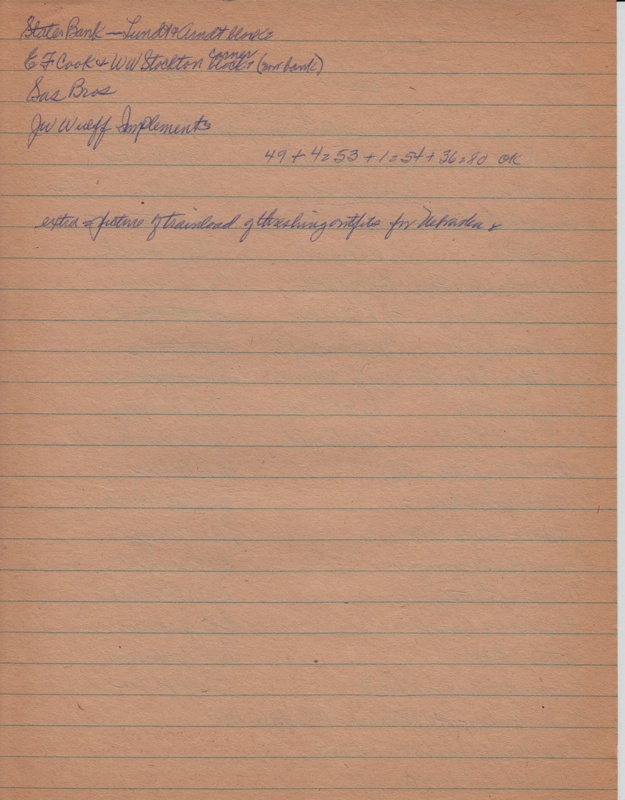 State Bank — Lundt & Arndt blocks
E F Cook & W W Stockton corner blocks (our bank)
Sas Bros
JW Wulff Implements
49 + 4 = 53 + 1 = 54 + 36 = 80 OK
extra = picture of trainload of threshing outfits for